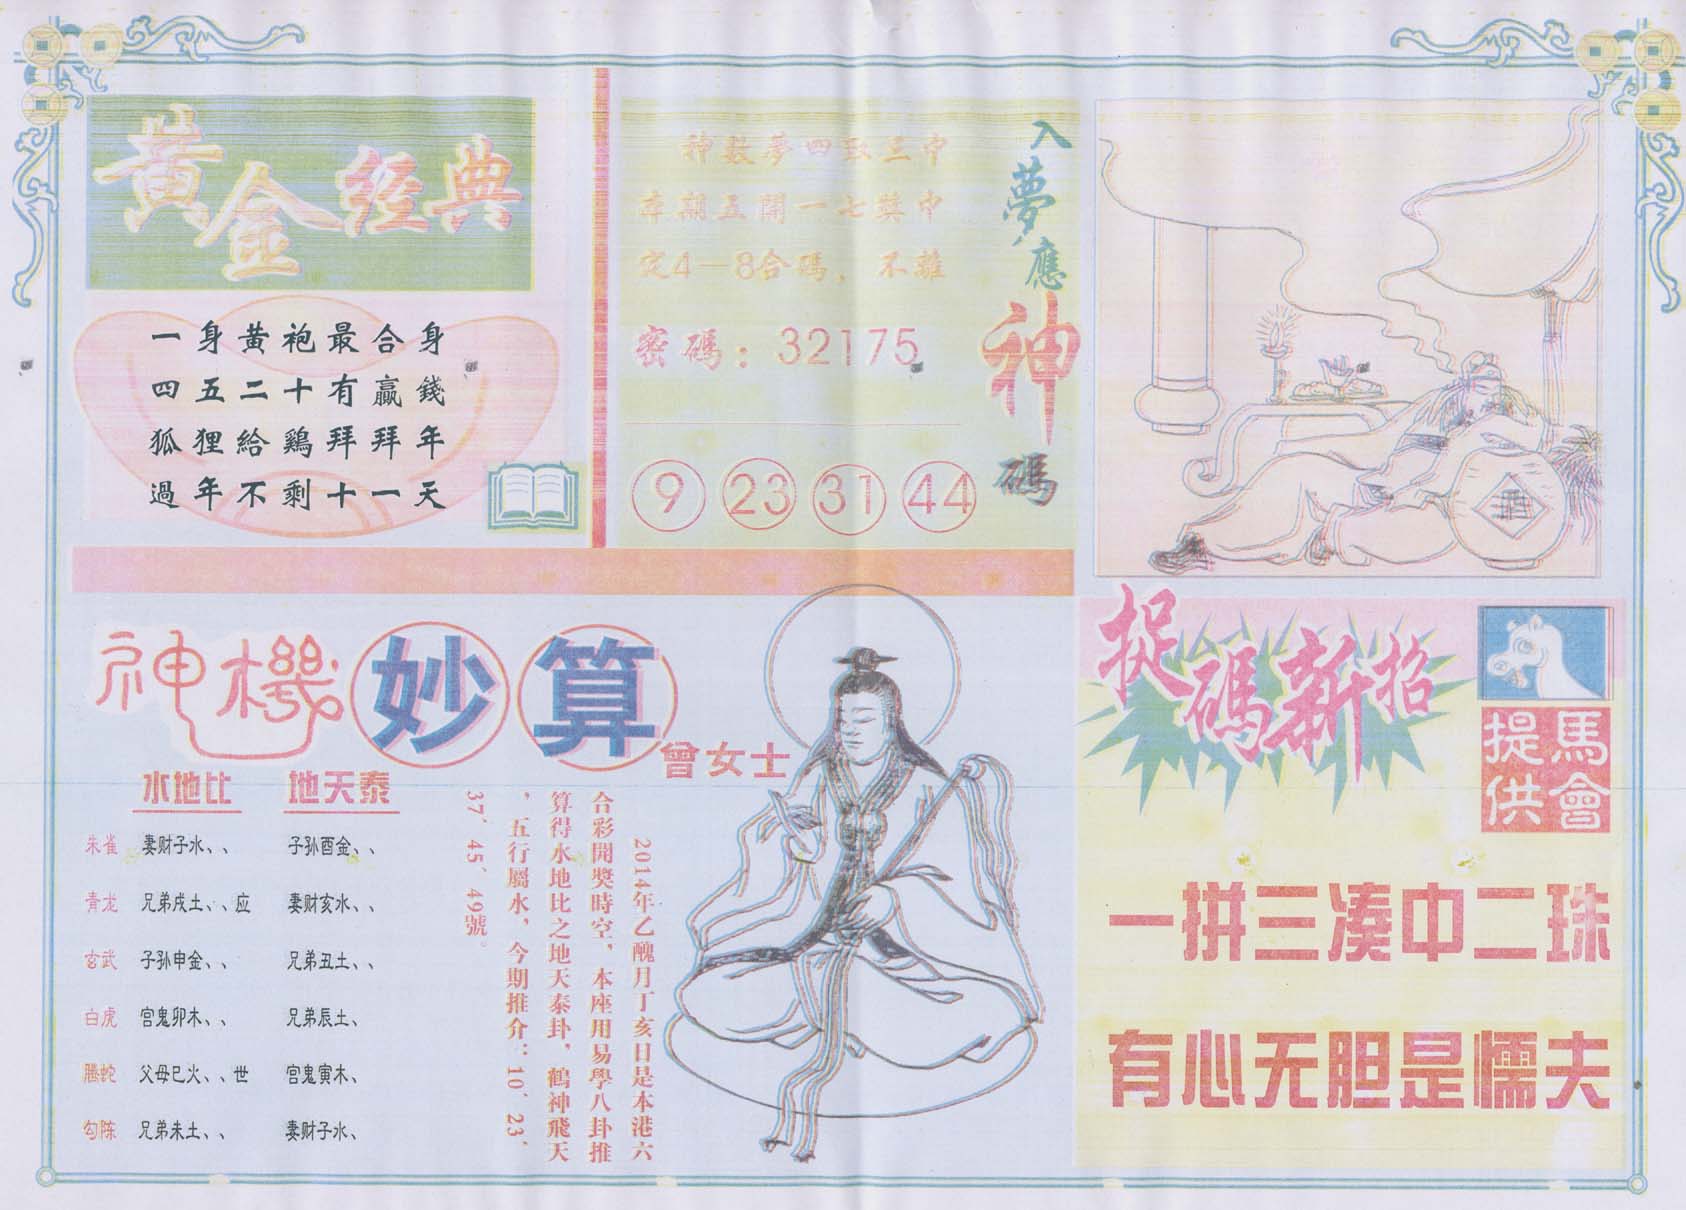 黃金經典
一身黃袍最合身
四五二十有贏錢
狐狸給鷄拜拜年
過年不剩十一天
神數夢四致三中
本期五開一七獎中
定4—8合碼，不離
密碼：32175
9 23 31 44
入夢應神碼
神機妙算
曾女士
水地比 地天泰
朱雀 妻财子水、、 子孙酉金、、
青龙 兄弟戌土、、应 妻财亥水、、
玄武 子孙申金、、 兄弟丑土、、
白虎 官鬼卯木、、 兄弟辰土、
螣蛇 父母巳火、、世 官鬼寅木、
勾陈 兄弟未土、、 妻财子水、
2014年乙醜月丁亥日是本港六
合彩開獎時空，本座用易學八卦推
算得水地比之地天泰卦，鶴神飛天
，五行屬水，今期推介：10、23、
37、45、49號。
捉碼新招
馬會提供
一拼三凑中二珠
有心无胆是懦夫